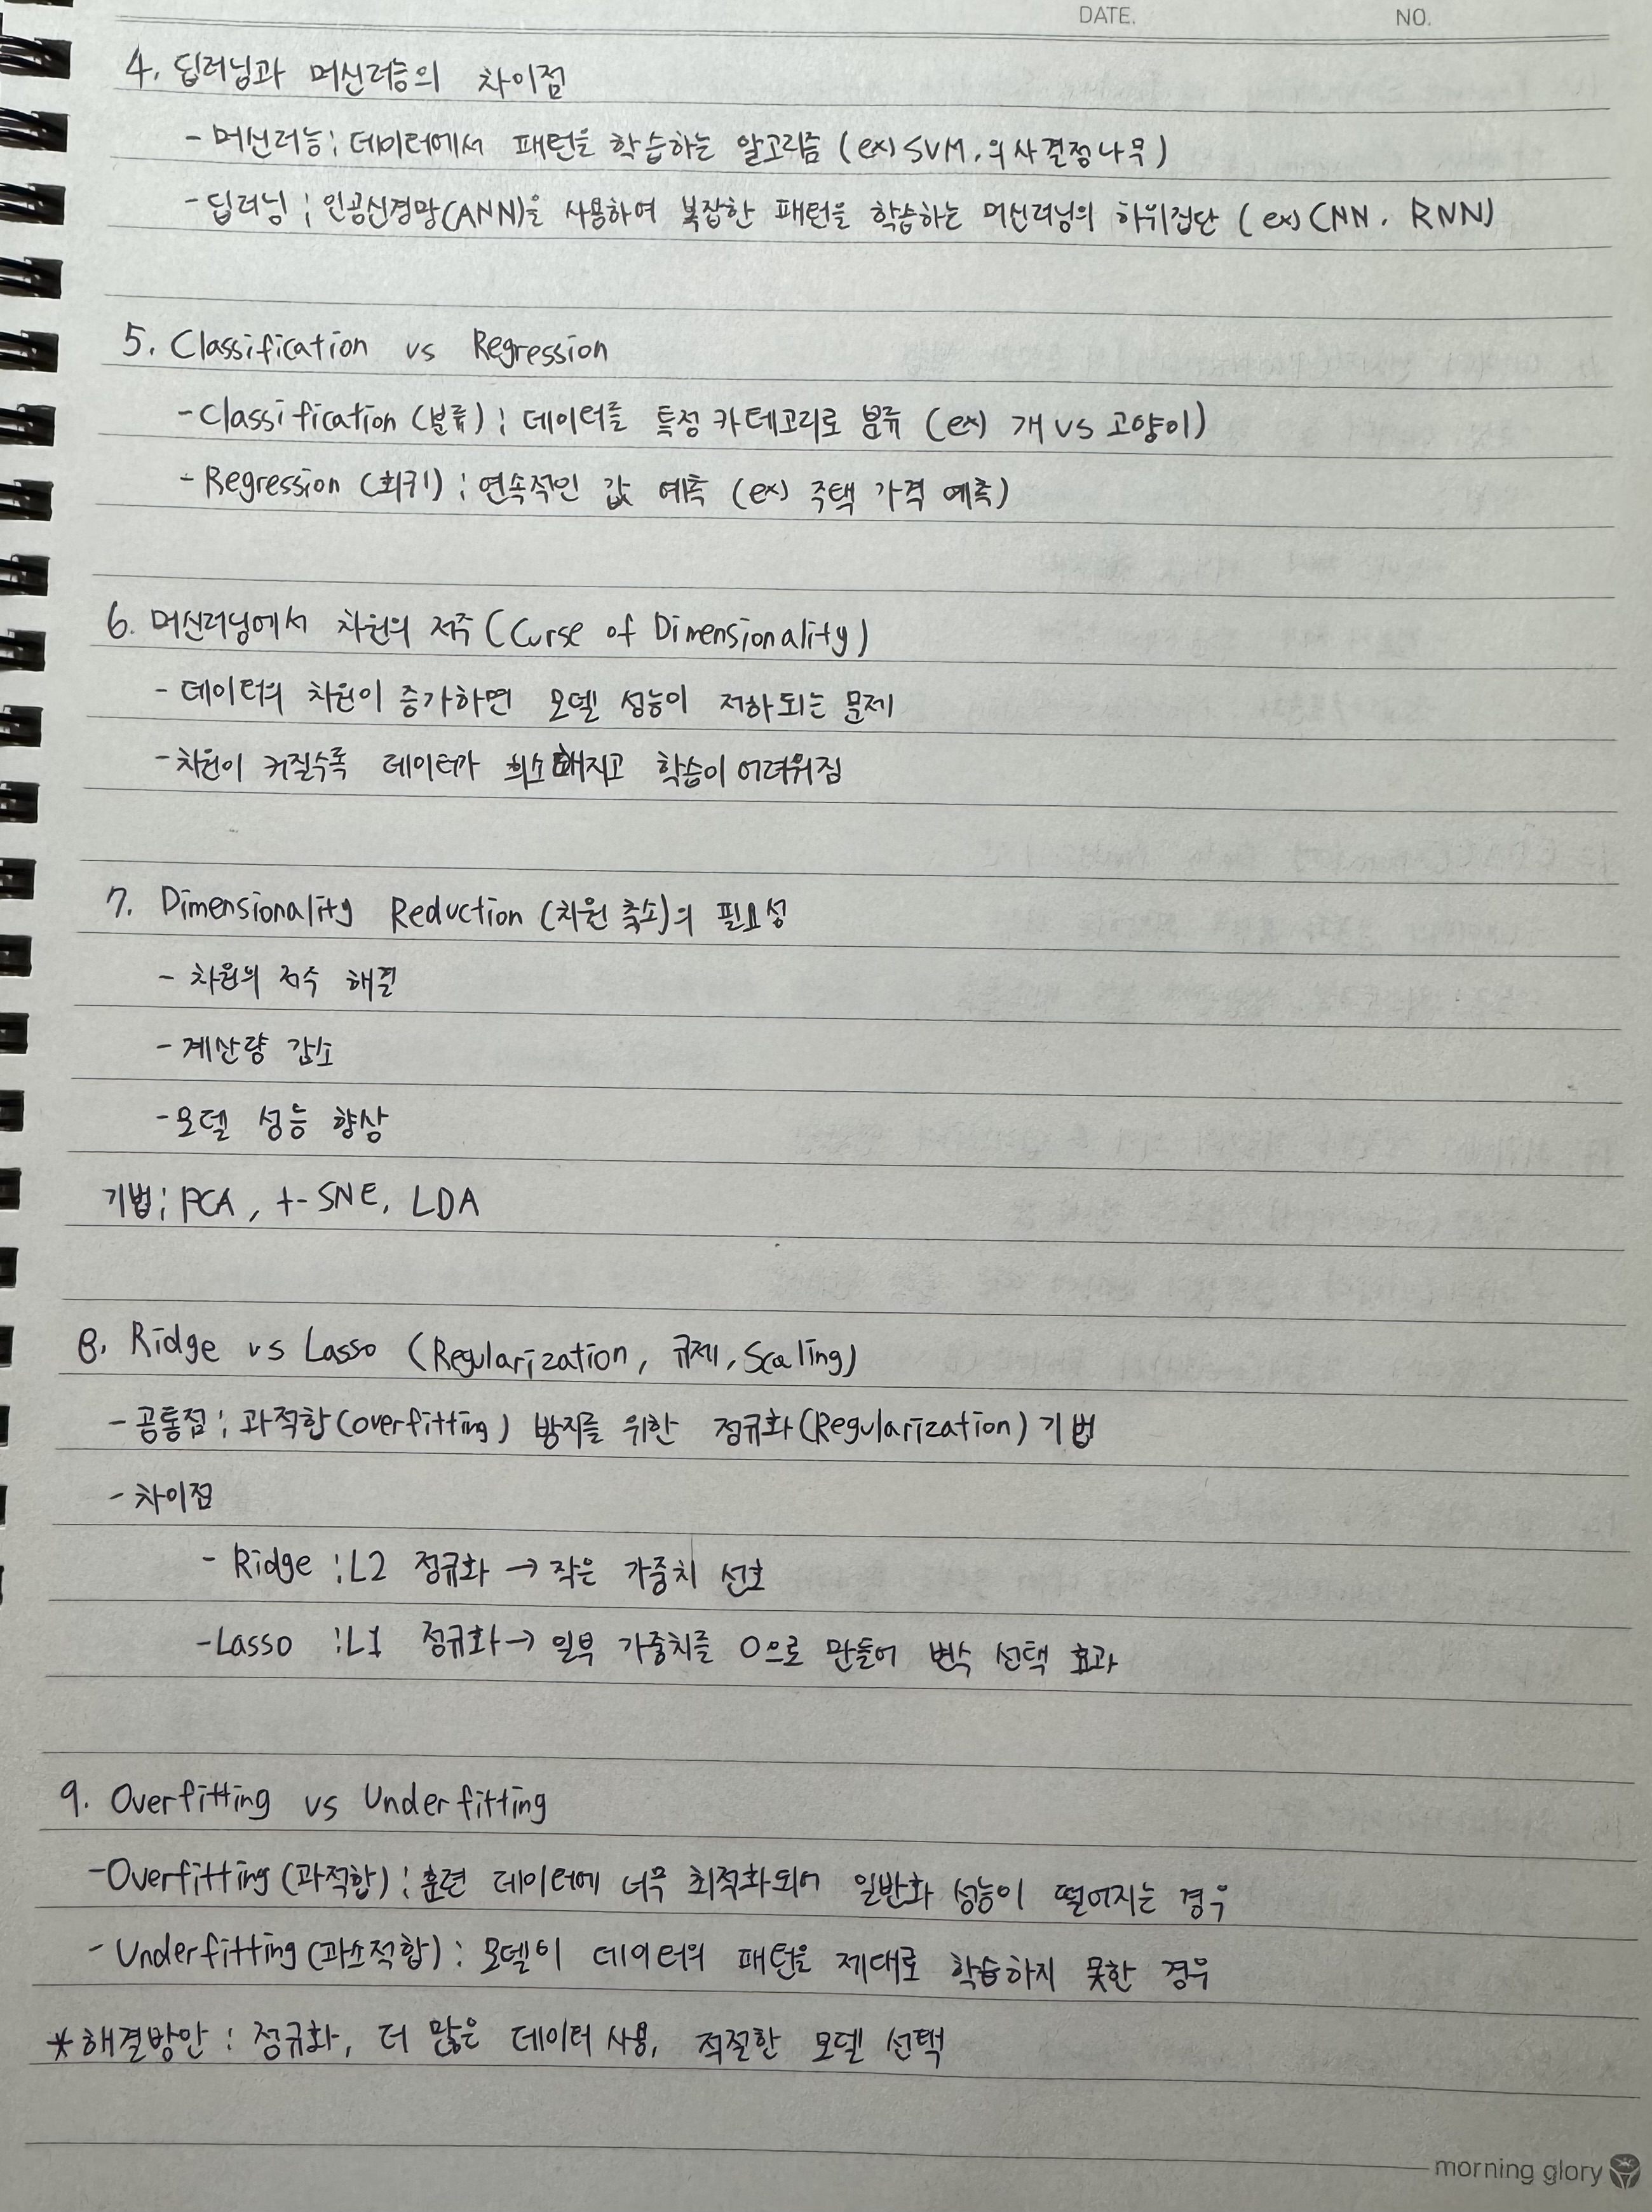 DATE. NO.
4. 딥러닝과 머신러능의 차이점
- 머신러능: 데이터에서 패턴을 학습하는 알고리즘 (ex) SVM, 의사결정나무)
- 딥러닝 : 인공신경망(ANN)을 사용하여 복잡한 패턴을 학습하는 머신러닝의 하위집단 (ex) CNN, RNN)
5. Classification vs Regression
- Classification (분류) : 데이터를 특정 카테고리로 분류 (ex) 개 vs 고양이)
- Regression (회귀) : 연속적인 값 예측 (ex) 주택 가격 예측)
6. 머신러닝에서 차원의 저주 (Curse of Dimensionality)
- 데이터의 차원이 증가하면 모델 성능이 저하되는 문제
- 차원이 커질수록 데이터가 희소해지고 학습이 어려워짐
7. Dimensionality Reduction (차원 축소)의 필요성
- 차원의 저주 해결
- 계산량 감소
- 모델 성능 향상
기법: PCA, t-SNE, LDA
8. Ridge vs Lasso (Regularization, 규제, Scaling)
- 공통점: 과적합(overfitting) 방지를 위한 정규화(Regularization) 기법
- 차이점
- Ridge : L2 정규화 → 작은 가중치 선호
- Lasso : L1 정규화 → 일부 가중치를 0으로 만들어 변수 선택 효과
9. Overfitting vs Underfitting
- Overfitting (과적합) : 훈련 데이터에 너무 최적화되어 일반화 성능이 떨어지는 경우
- Underfitting (과소적합) : 모델이 데이터의 패턴을 제대로 학습하지 못한 경우
* 해결방안 : 정규화, 더 많은 데이터 사용, 적절한 모델 선택
morning glory